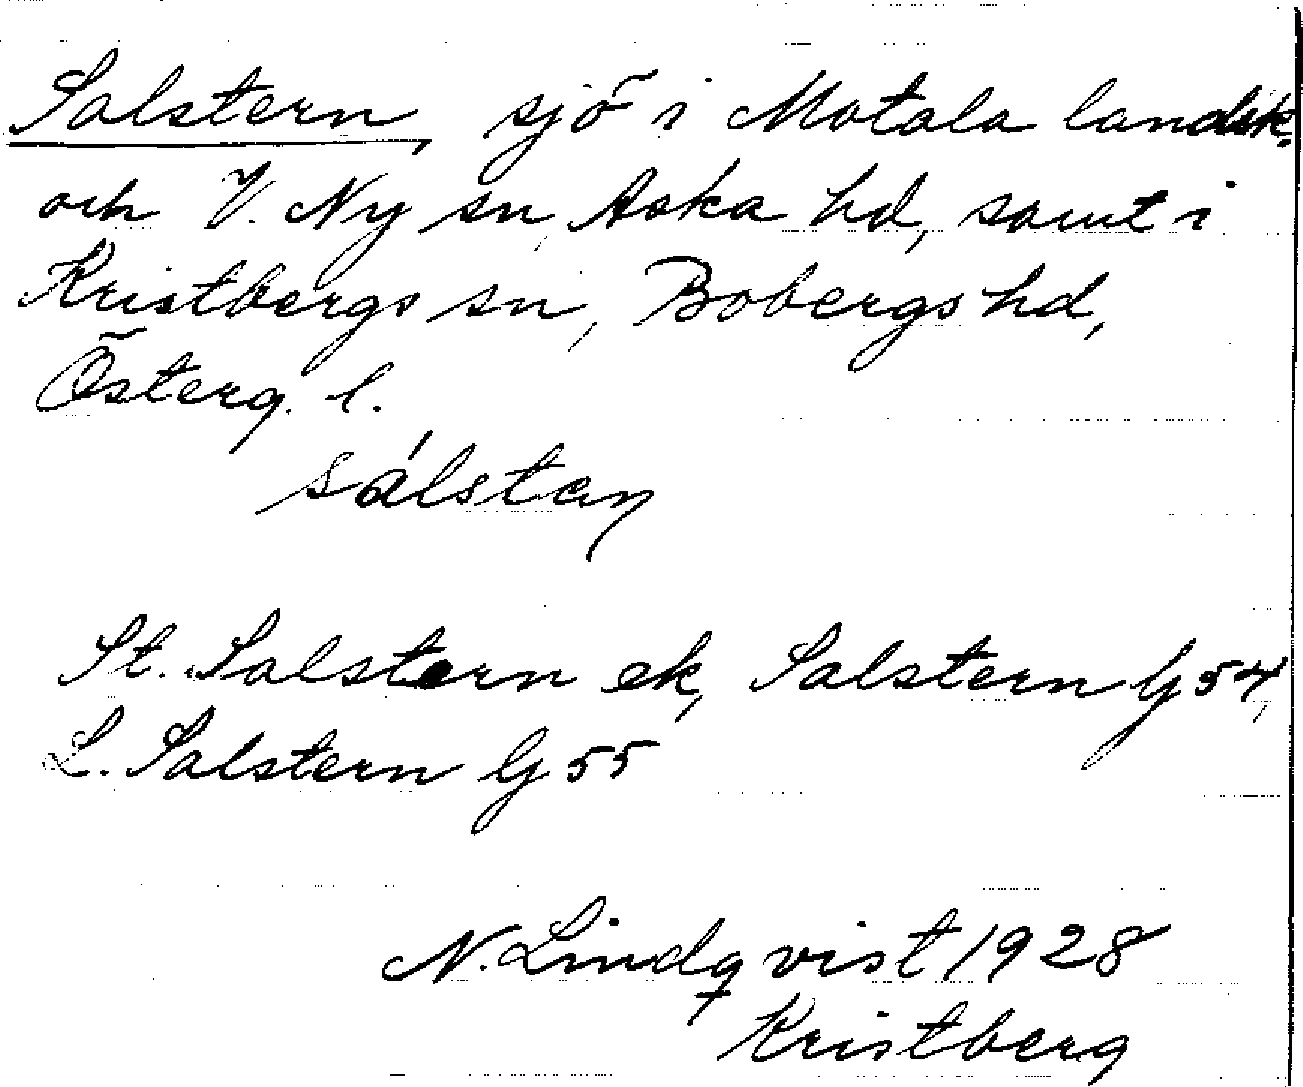 Salstern, sjö i Motala landsk.
och V. Ny sn, Aska hd, samt i
Kristbergs sn, Bobergs hd,
Österg. l.
sálstaṇ
St. Salstern ek, Salstern G 54,
L. Salstern G 55
N. Lindqvist 1928
Kristberg